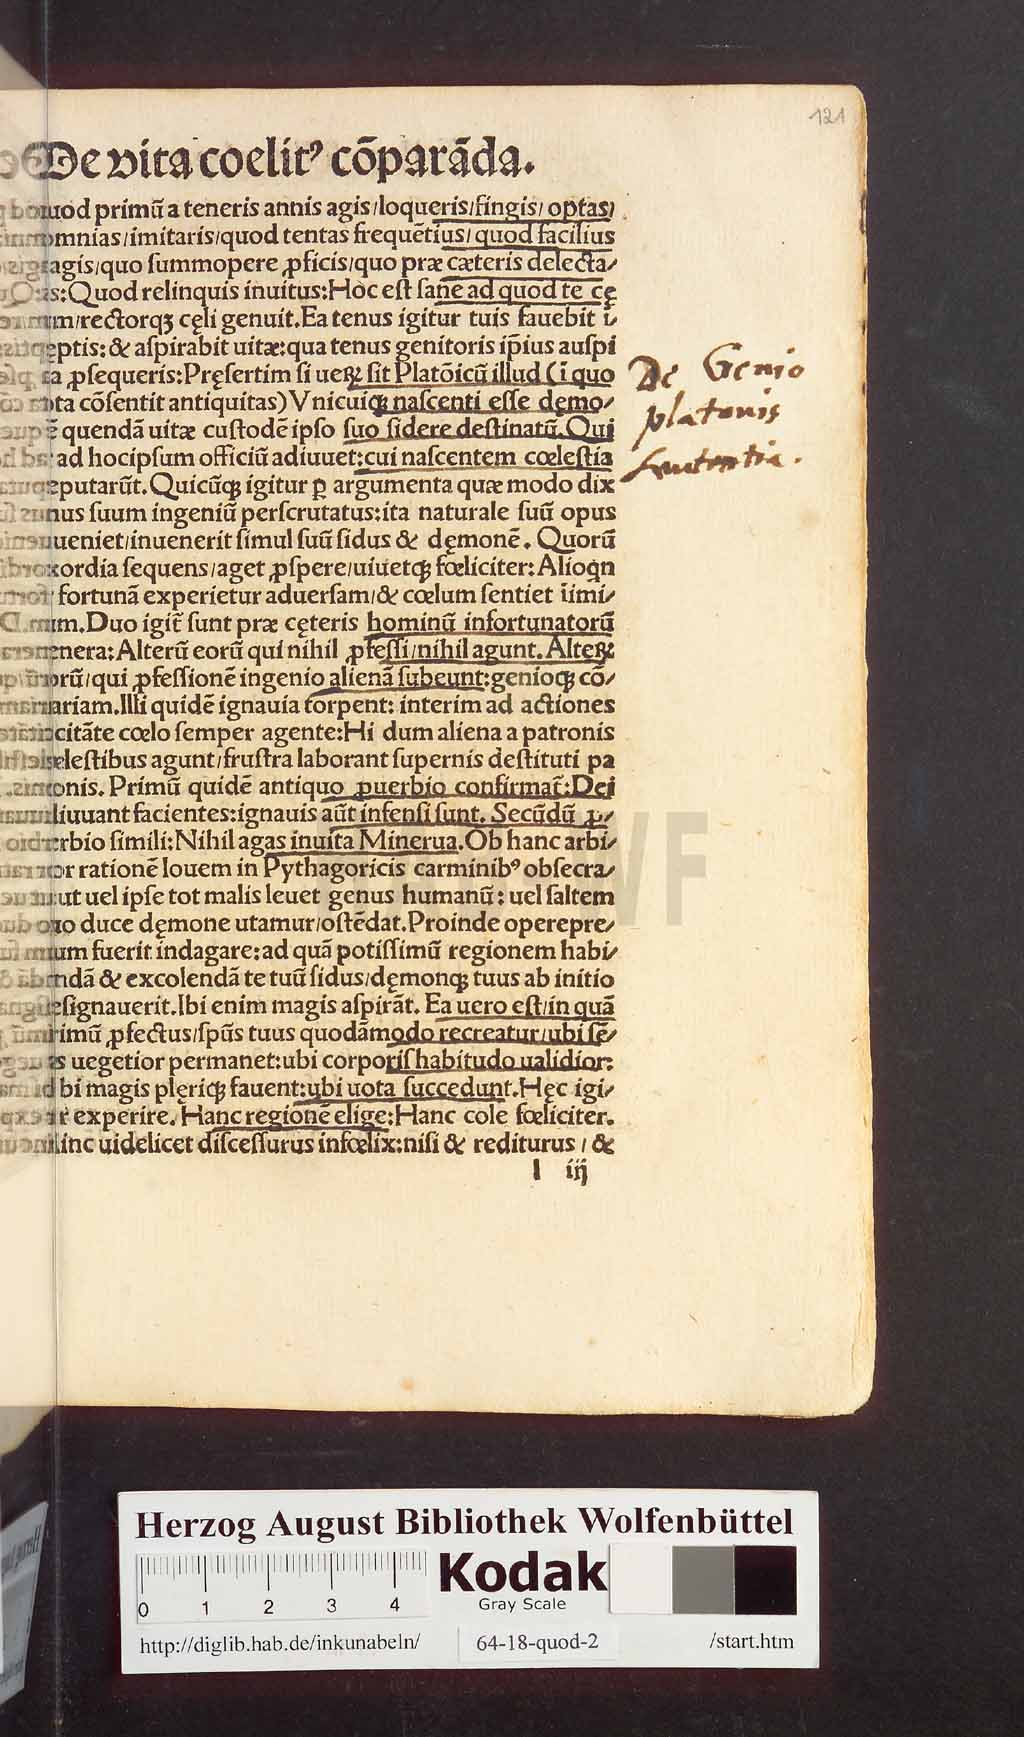 121
De vita coelitꝰ cōparāda.
quod primū a teneris annis agis/loqueris/fingis/optas/
somnias/imitaris/quod tentas frequētius/quod facilius
agis/quo summopere ꝓficis/quo præ cæteris delecta/
Quod relinquis inuitus:Hoc est sane ad quod te cę
rectorqꝫ cęli genuit.Ea tenus igitur tuis fauebit ī
ceptis:& aspirabit uitæ:qua tenus genitoris ip̄ius auspi
ꝓsequeris:Pręsertim si ueꝝ sit Platōicū illud (ī quo
cōsentit antiquitas)Vnicuiqꝫ nascenti esse dęmo/
quendā uitæ custodē ipso suo sidere destinatū.Qui
ad hocipsum officiū adiuuet:cui nascentem cœlestia
deputarūt.Quicūqꝫ igitur ꝑ argumenta quæ modo dix
suum ingeniū perscrutatus:ita naturale suū opus
inueniet/inuenerit simul suū sidus & dęmonē.Quorū
exordia sequens/aget ꝓspere/uiuetqꝫ fœliciter:Alioqn
fortunā experietur aduersam/& cœlum sentiet īimi/
Duo igit̄ sunt præ cęteris hominū infortunatorū
genera:Alterū eorū qui nihil ꝓfessi/nihil agunt.Alteꝝ
qui ꝓfessionē ingenio alienā subeunt:genioqꝫ cō/
trariam.Illi quidē ignauia torpent: interim ad actiones
citāte cœlo semper agente:Hi dum aliena a patronis
cœlestibus agunt/frustra laborant supernis destituti pa
tronis. Primū quidē antiquo ꝓuerbio confirmat̄:Dei
iuuant facientes:ignauis aūt infensi sunt. Secūdū ꝓ/
uerbio simili:Nihil agas inuita Minerua.Ob hanc arbi/
tror rationē Iouem in Pythagoricis carminibꝰ obsecra/
ut uel ipse tot malis leuet genus humanū: uel saltem
quo duce dęmone utamur/ostēdat.Proinde operepre/
fuerit indagare:ad quā potissimū regionem habi/
tandā & excolendā te tuū sidus/dęmonqꝫ tuus ab initio
designauerit.Ibi enim magis aspirāt. Ea uero est/in quā
primū ꝓfectus/sp̄us tuus quodāmodo recreatur/ubi sē/
uegetior permanet:ubi corporis habitudo ualidior:
ubi magis plęriqꝫ fauent:ubi uota succedunt.Hęc igi/
experire. Hanc regionē elige:Hanc cole fœliciter.
hinc uidelicet discessurus infœlix:nisi & rediturus / &
l iij
De Genio
platonis
sententia.
Herzog August Bibliothek Wolfenbüttel
Kodak
Gray Scale
0 1 2 3 4
http://diglib.hab.de/inkunabeln/ 64-18-quod-2 /start.htm